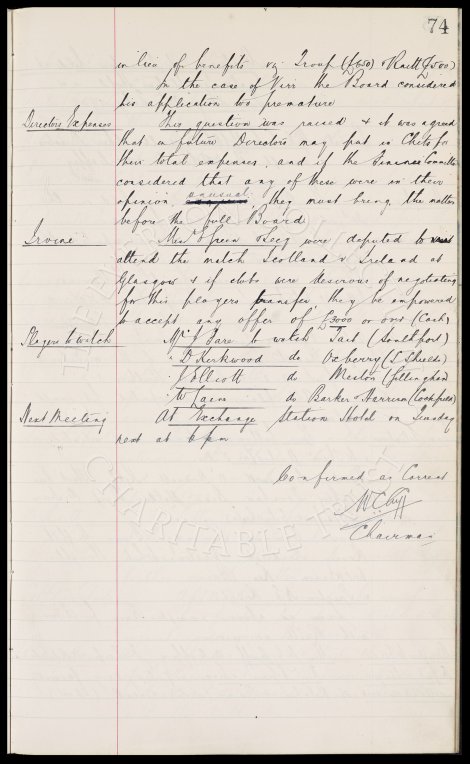 74
in lieu of benefits viz Troup (£650) & Raitt (£500)
In the case of Virr the Board considered
his application too premature
Directors Expenses This question was raised & it was agreed
that in future Directors may put in Chits for
their total expenses, and if the Finance Committee
considered that any of these were in their
opinion unusual, they must bring the matter
before the full Board
Irvine Messrs Green & were deputed to
attend the match Scotland v Ireland at
Glasgow & if clubs were desirous of negotiating
for this players transfer they be empowered
to accept any offer of £3000 or over (Cash)
Players to watch Mr J Fare to watch Tait (Southport)
" D. Kirkwood do Oxberry (S. Shields)
" J Elliott do Meston (Gillingham)
" W Sawyer do Barker & Harrison (Cockfield)
Next Meeting At Exchange Station Hotel on Tuesday
next at 6 pm
Confirmed as Correct
W.C. Cuff
Chairman
THE EVERTON
CHARITABLE TRUST